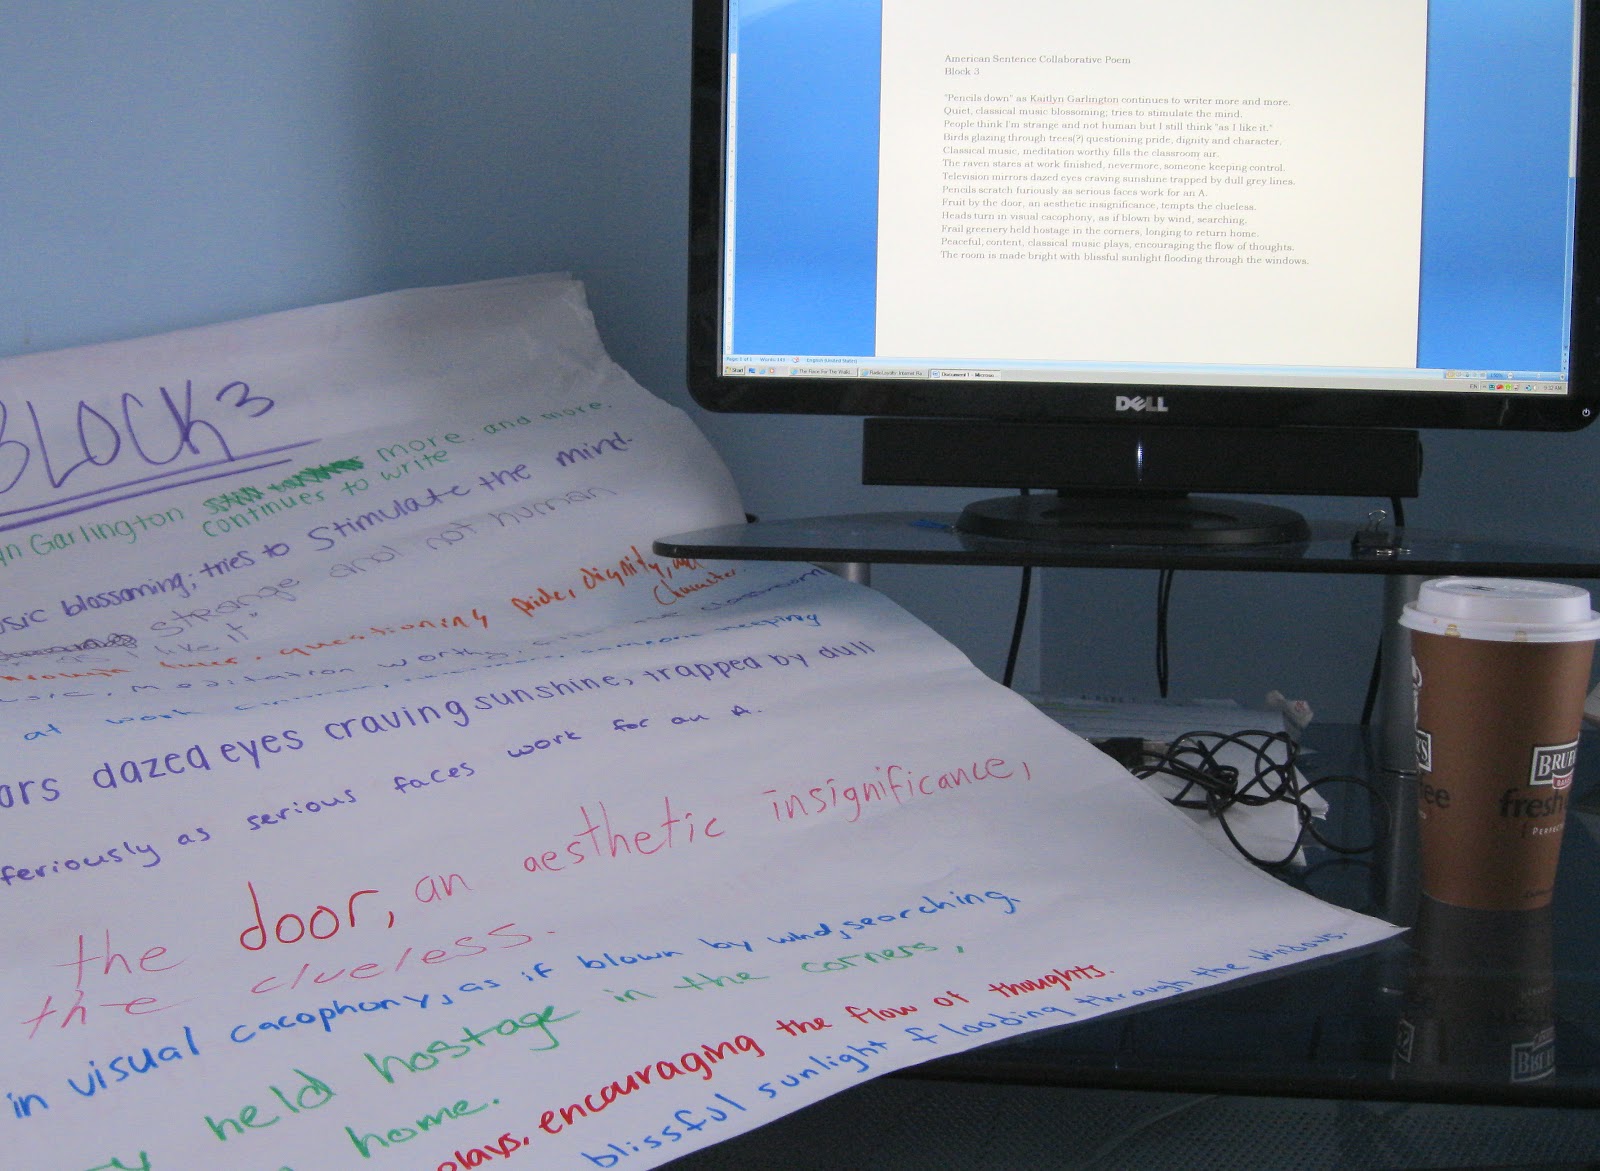 American Sentence Collaborative Poem
Block 3
"Pencils down" as Kaitlyn Garlington continues to writer more and more.
Quiet, classical music blossoming; tries to stimulate the mind.
People think I'm strange and not human but I still think "as I like it."
Birds glazing through trees(?) questioning pride, dignity and character.
Classical music, meditation worthy fills the classroom air.
The raven stares at work finished, nevermore, someone keeping control.
Television mirrors dazed eyes craving sunshine trapped by dull grey lines.
Pencils scratch furiously as serious faces work for an A.
Fruit by the door, an aesthetic insignificance, tempts the clueless.
Heads turn in visual cacophony, as if blown by wind, searching.
Frail greenery held hostage in the corners, longing to return home.
Peaceful, content, classical music plays, encouraging the flow of thoughts.
The room is made bright with blissful sunlight flooding through the windows.
English (United States)
Start
DELL
BLOCK 3
Garlington more and more.
continues to write
sic blossoming; tries to stimulate the mind.
strange and not human
like it"
through questioning pride, dignity, and
character.
meditation worthy, classroom
at work someone keeping
ors dazed eyes craving sunshine, trapped by dull
feriously as serious faces work for an A.
the door, an aesthetic insignificance,
the clueless.
in visual cacophony, as if blown by wnd, searching.
held hostage in the corners,
home.
plays, encouraging the flow of thoughts.
blissful sunlight flooding through the windows.
BRUE
fresh